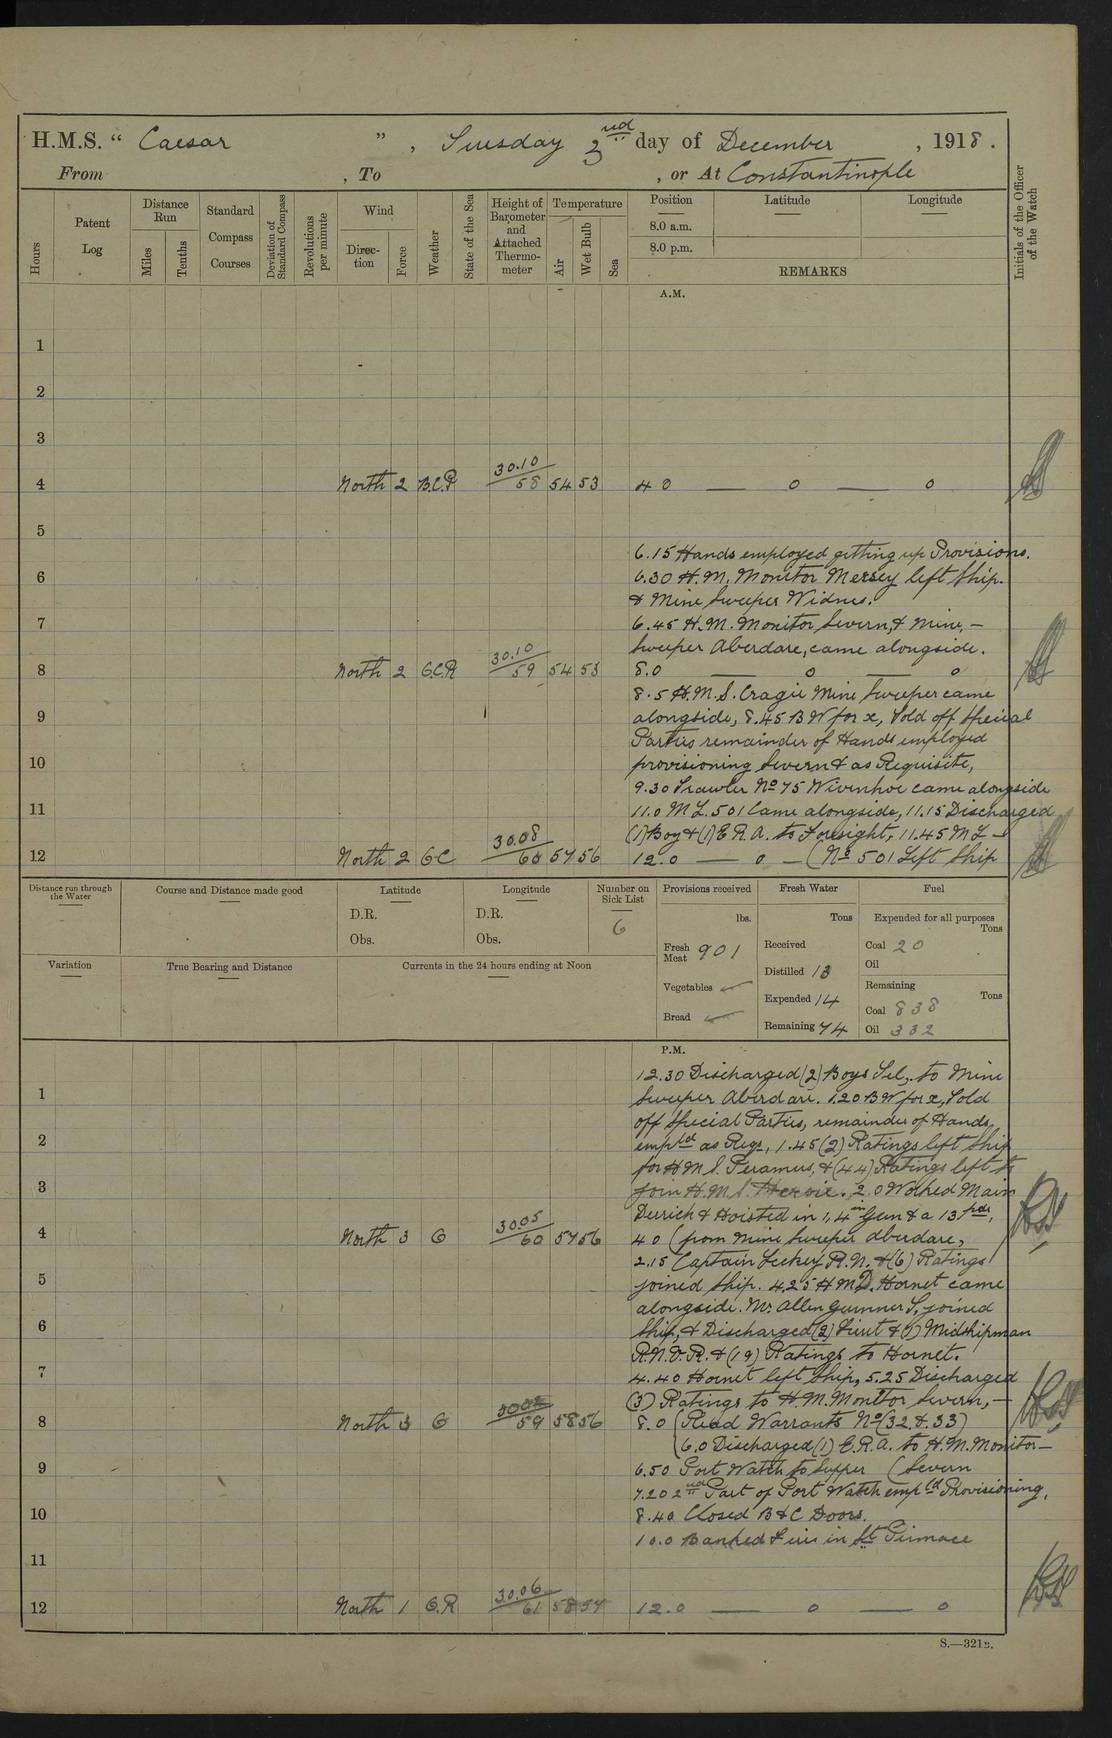 H.M.S. “ Caesar ” , Tuesday 3 rd day of December , 1918 .
From , To , or At Constantinople
Hours
Patent Log
Distance Run
Miles
Tenths
Standard Compass Courses
Deviation of Standard Compass
Revolutions per minute
Wind
Direc- tion
Force
Weather
State of the Sea
Height of Barometer and Attached Thermo- meter
Temperature
Air
Wet Bulb
Sea
Position
Latitude
Longitude
8.0 a.m.
8.0 p.m.
REMARKS
Initials of the Officer of the Watch
A.M.
1
2
3
4 North 2 B.C.R 30.10 58 54 53 4 0 — 0 — 0
5
6.15 Hands employed getting up Provisions.
6 6.30 H.M. Monitor Mersey left Ship.
& Mine Sweeper Widnes.
7 6.45 H.M. Monitor Severn, & Mine, —
Sweeper Aberdare, came alongside.
8 North 2 G.C.R 30.10 59 54 53 8.0 — 0 — 0
8.5 H.M.S. Cragie Mine Sweeper came
9 alongside, 8.45 B W for x, Told off Special
Parties remainder of Hands employed
10 provisioning Severn & as Requisite,
9.30 Trawler No 75 Wivenhoe came alongside
11 11.0 M L. 501 Came alongside, 11.15 Discharged
(1) Boy & (1) E R.A. to Foresight, 11.45 M L —
12 North 2 G C 30.08 60 57 56 12.0 — 0 — (No 501 Left Ship
Distance run through the Water
Course and Distance made good
Latitude
D.R.
Obs.
Longitude
D.R.
Obs.
Number on Sick List
6
Provisions received
lbs.
Fresh Meat 901
Vegetables
Bread
Fresh Water
Tons
Received
Distilled 13
Expended 14
Remaining 74
Fuel
Expended for all purposes
Tons
Coal 20
Oil
Remaining
Tons
Coal 838
Oil 332
Variation
True Bearing and Distance
Currents in the 24 hours ending at Noon
P.M.
12.30 Discharged (2) Boys Tel, to Mine
1 Sweeper Aberdare. 1.20 B W for x, Told
off Special Parties, remainder of Hands,
2 empld as Reqs, 1.45 (2) Ratings left Ship
for H M S. Peramus, & (44) Ratings left to
3 join H.M.S. Heroic. 2.0 Worked Main
Derrick & Hoisted in 1, 4 in Gun & a 13 pdr,
4 North 3 G 30.05 60 57 56 4 0 (from Mine Sweeper Aberdare,
2.15 Captain R.N. & (6) Ratings
5 joined Ship. 4.25 H M D. Hornet came
alongside. Mr Allen Gunner T, joined
6 Ship, & Discharged (2) Lieut & (1) Midshipman
R.N.V.R. & (19) Ratings to Hornet.
7 4.40 Hornet left Ship, 5.25 Discharged
(3) Ratings to H.M. Monitor Severn, —
8 North 3 G 30.02 59 58 56 8.0 (Read Warrants No (32 & 33)
(6.0 Discharged (1) E.R.A. to H.M. Monitor —
9 6.50 Port Watch to Supper (Severn
7.20 2nd Part of Port Watch empld Provisioning,
10 8.40 Closed B & C Doors.
10.0 Banked Fires in St Pinnace
11
12 North 1 G.R 30.06 61 58 57 12.0 — 0 — 0
S.—321B.